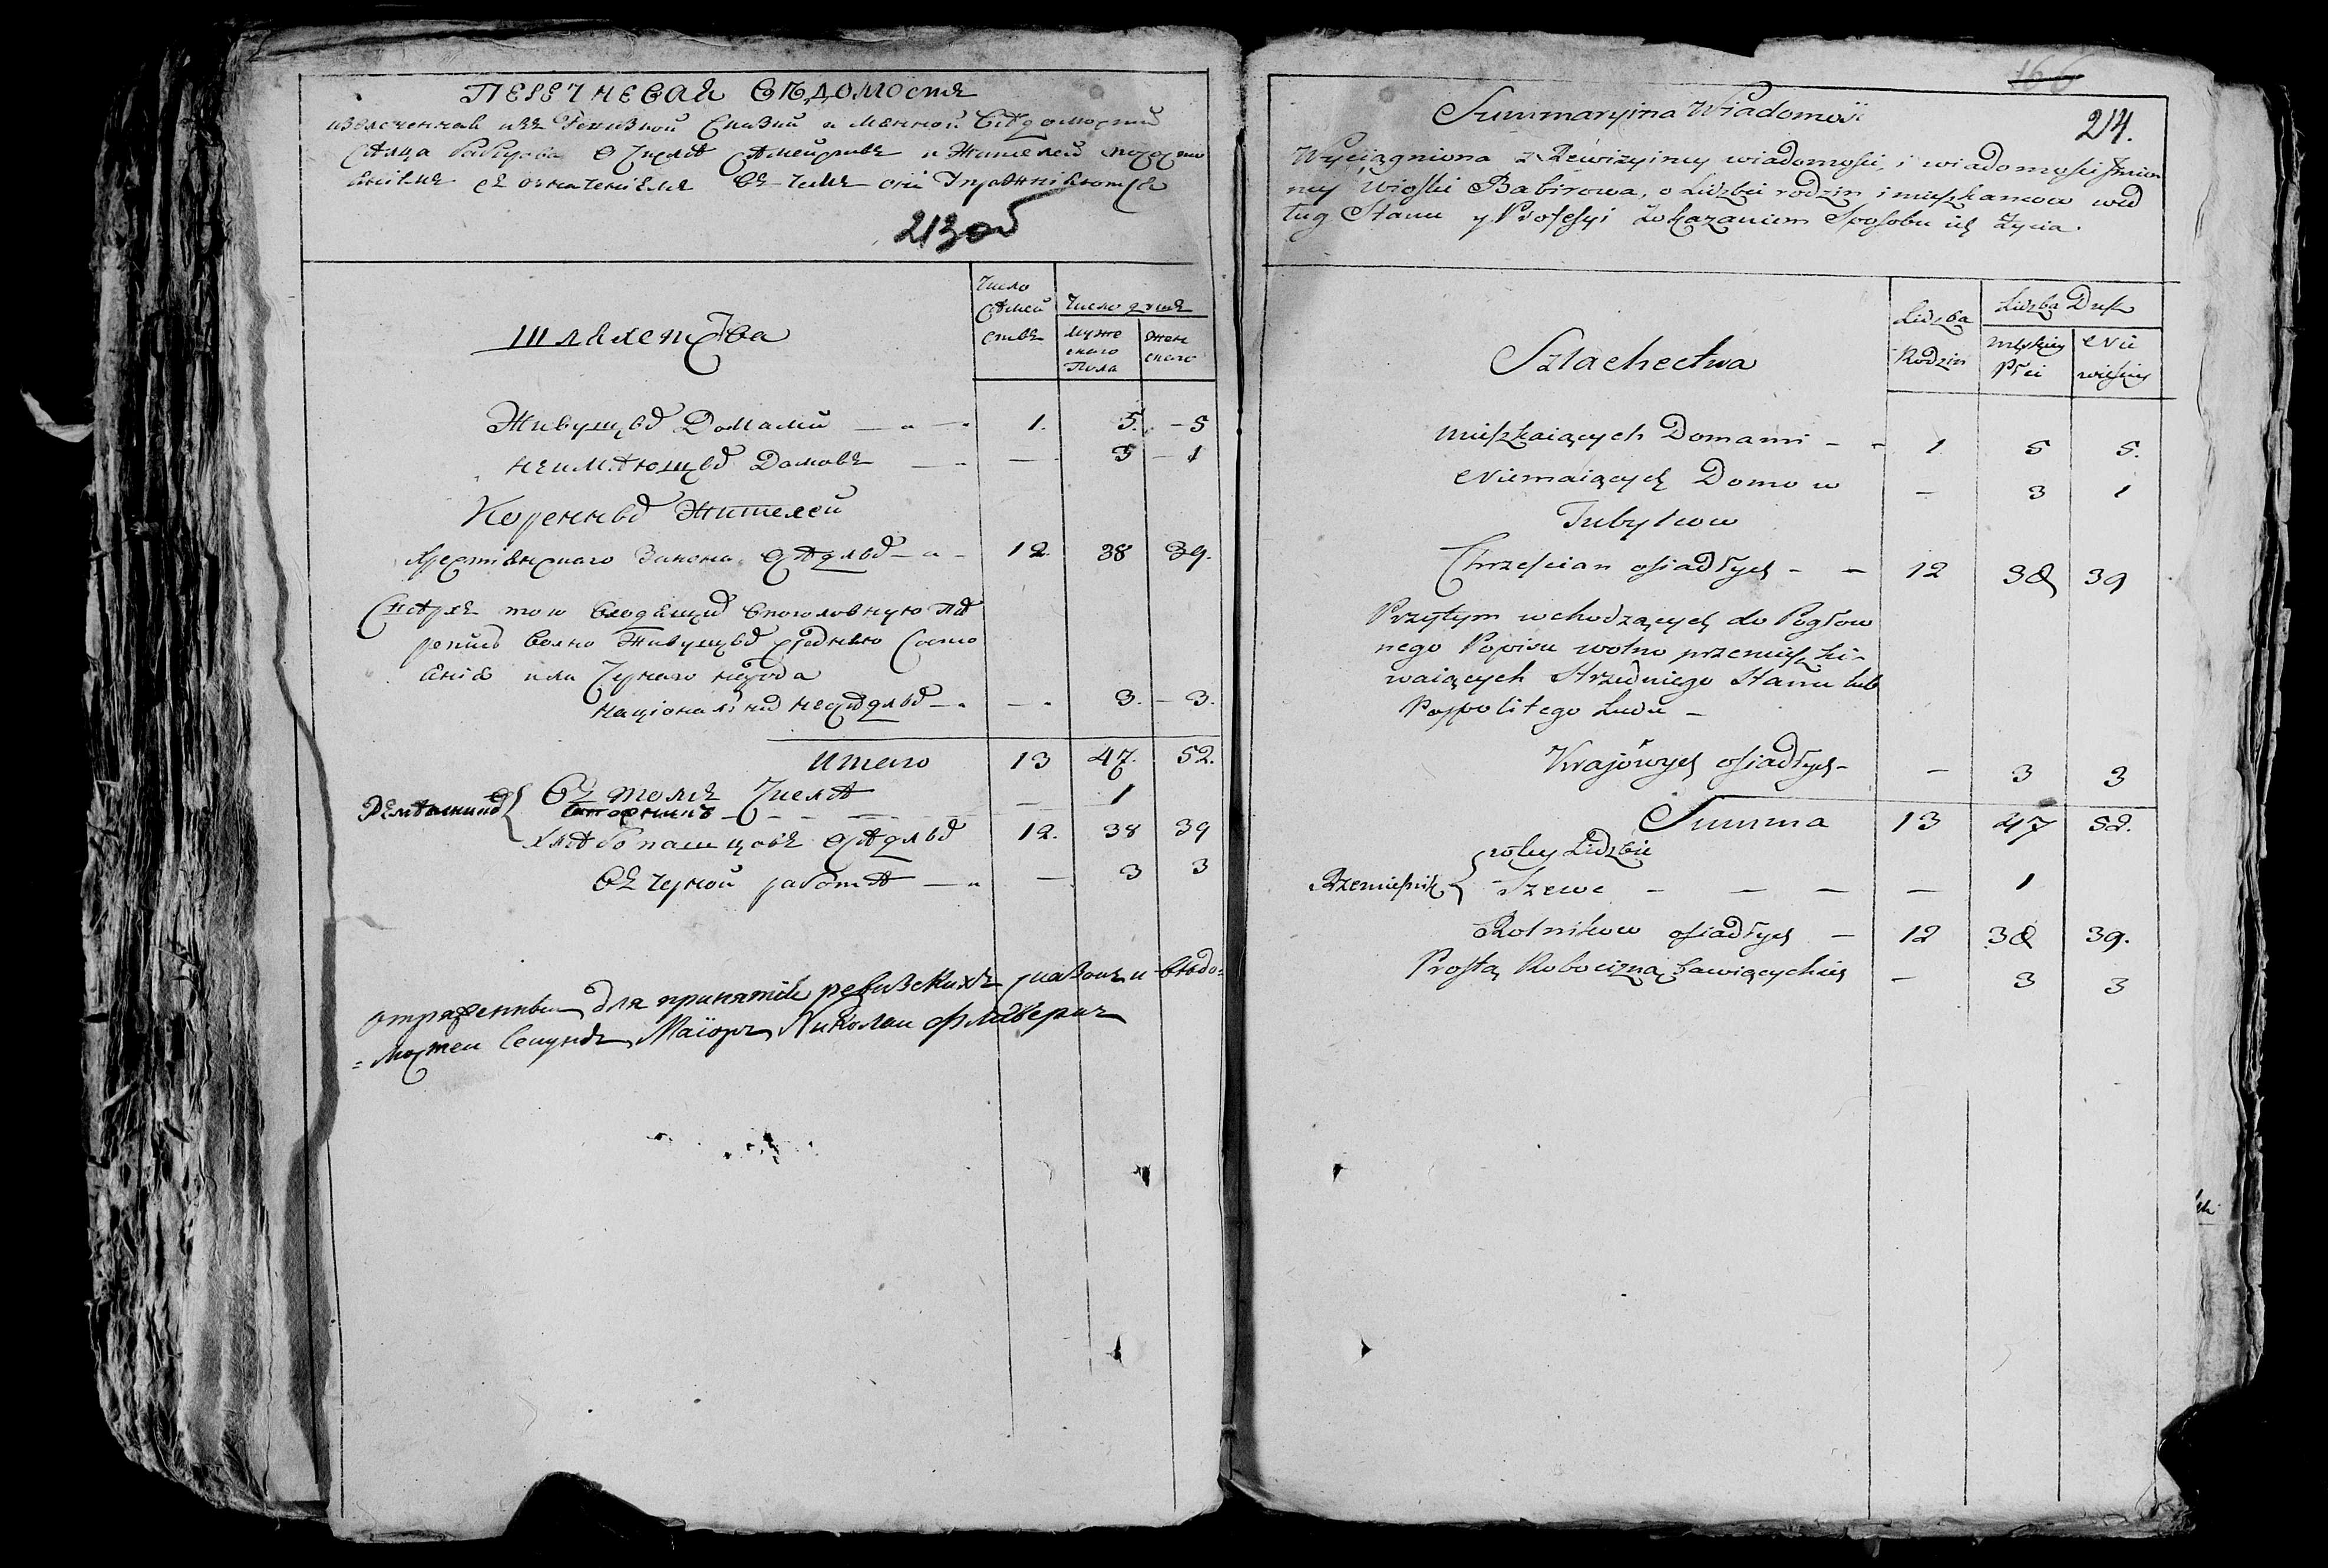 ПЕРЕЧНЕВАЯ ВѢДОМОСТЬ
извлеченная изъ Ревизкой Сказки и именной Вѣдомости
Сѣлца о Числѣ Сѣмействъ и Жителей по
съ означенiемъ въ чемъ они Упражнiяются
213об
Шляхетства
Число
Сѣмей
ствъ
Число душъ
муже
ского
Пола
жен
ского
Живущыхъ Домами — " — 1. 5. - 5
неимѣющыхъ Домовъ — — 3 - 1
Коренныхъ Жителей
Закона сѣдлыхъ — " - 12. 38 39.
Сверхъ того входящихъ в поголовную пѣ
репись волно Живущыхъ среднего Состо
янiя или Чернаго народа
нацiоналныхъ несѣдлыхъ — " — " 3. - 3.
Итаго 13 47. 52.
Въ томъ Числѣ — 1
12. 38 39
Въ черной работѣ — " — 3 3
отряженный для принятiя ревизскихъ сказокъ и вѣдо=
=мостеи Секундъ Маiоръ Николаи
166
214.
Summaryina Wiadomość
Wyciągniona z Rewizyiney wiadomości, i wiadomości Imien
ney Wioski Babirowa, o Liczbie rodzin i mieszkancow wed
ług Stanu y Profesyi z okazaniem Sposobu ich Życia.
Szlachectwa
Liczba
Rodzin
Liczba Dusz
męskiey
Płci
Nie
wieściey
mieszkaiących Domami - - 1 5 5.
Niemaiących Domow - 3 1
Tubylcow
Chrześcian osiadłych - - 12 38 39
Przytym wchodzących do Pogłow
nego Popisu wolno przemieszki-
waiących Strzedniego Stanu lub
Pospolitego Ludu -
Krajowych osiadłych - - 3 3
Summa 13 47 52.
w tey Liczbie
Rzemieślnik { Szewc - - - - 1
Rolnikow osiadłych - 12 38 39.
Prostą Robocizną bawiących się - 3 3